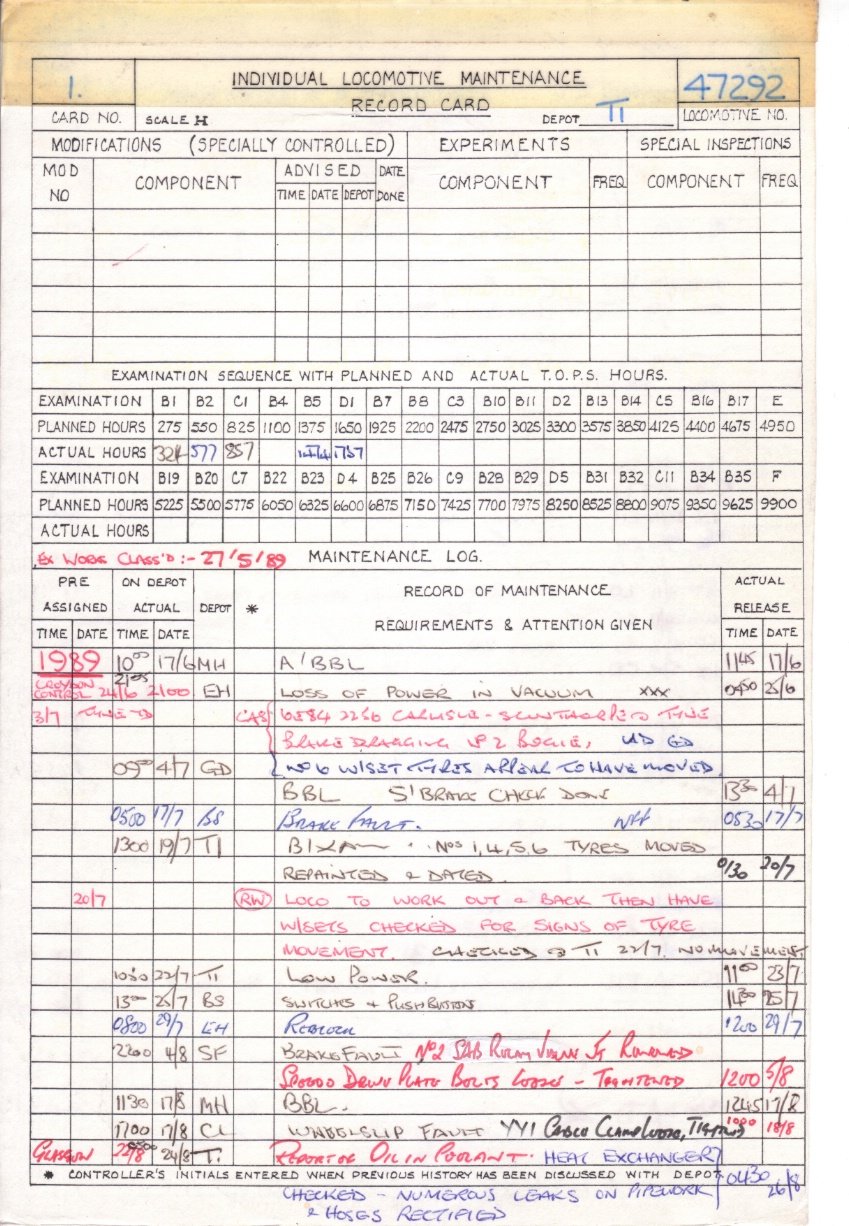 1. INDIVIDUAL LOCOMOTIVE MAINTENANCE 47292
RECORD CARD
CARD NO. SCALE H DEPOT TI LOCOMOTIVE NO.
MODIFICATIONS (SPECIALLY CONTROLLED) EXPERIMENTS SPECIAL INSPECTIONS
MOD NO COMPONENT ADVISED DATE DONE COMPONENT FREQ COMPONENT FREQ
TIME DATE DEPOT
EXAMINATION SEQUENCE WITH PLANNED AND ACTUAL T.O.P.S. HOURS.
EXAMINATION B1 B2 C1 B4 B5 D1 B7 B8 C3 B10 B11 D2 B13 B14 C5 B16 B17 E
PLANNED HOURS 275 550 825 1100 1375 1650 1925 2200 2475 2750 3025 3300 3575 3850 4125 4400 4675 4950
ACTUAL HOURS 324 577 857 1737
EXAMINATION B19 B20 C7 B22 B23 D4 B25 B26 C9 B28 B29 D5 B31 B32 C11 B34 B35 F
PLANNED HOURS 5225 5500 5775 6050 6325 6600 6875 7150 7425 7700 7975 8250 8525 8800 9075 9350 9625 9900
ACTUAL HOURS
EX WORK CLASS'D :- 27/5/89 MAINTENANCE LOG.
PRE ASSIGNED ON DEPOT ACTUAL DEPOT * RECORD OF MAINTENANCE ACTUAL RELEASE
REQUIREMENTS & ATTENTION GIVEN
TIME DATE TIME DATE TIME DATE
1989 10 00 17/6 MH A'BBL 1145 17/6
CROYDON CONTROL 24/6 21 05 2100 EH LOSS OF POWER IN VACUUM XXX 0450 25/6
3/7 TYNE TO CAS 6S84 2256 CARLISLE - SCUNTHORPE TO TYNE
BRAKE DRAGGING Nº 2 BOGIE, UD GD
09 00 4/7 GD Nº 6 W/SET TYRES APPEAR TO HAVE MOVED
BBL S'BRAKE CHECK DONE 13 30 4/7
0500 17/7 BS BRAKE FAULT. NFF 0530 17/7
1300 19/7 TI NOS 1,4,5,6 TYRES MOVED
REPAINTED & DATED 0130 20/7
20/7 RW LOCO TO WORK OUT & BACK THEN HAVE
W/SETS CHECKED FOR SIGNS OF TYRE
MOVEMENT. CHECKED @ TI 22/7. NO MOVEMENT
1030 22/7 TI LOW POWER. 11 00 23/7
13 00 25/7 BS SWITCHES & PUSHBUTTONS 1430 25/7
0800 29/7 EH 1200 29/7
2200 4/8 SF BRAKE FAULT Nº2 SAB RELAY VALVE RENEWED
SPEEDO DRIVE PLATE BOLTS LOOSE - TIGHTENED 1200 5/8
1130 17/8 MH BBL. 1245 17/8
1700 17/8 CL WHEELSLIP FAULT YY1 CABLE CLAMP LOOSE, TIGHTENED 1000 18/8
GLASGOW 22/8 0500 24/8 TI REPORT OF OIL IN COOLANT. HEAT EXCHANGER
* CONTROLLER'S INITIALS ENTERED WHEN PREVIOUS HISTORY HAS BEEN DISCUSSED WITH DEPOT 0430 26/8
CHECKED - NUMEROUS LEAKS ON PIPEWORK
& HOSES RECTIFIED